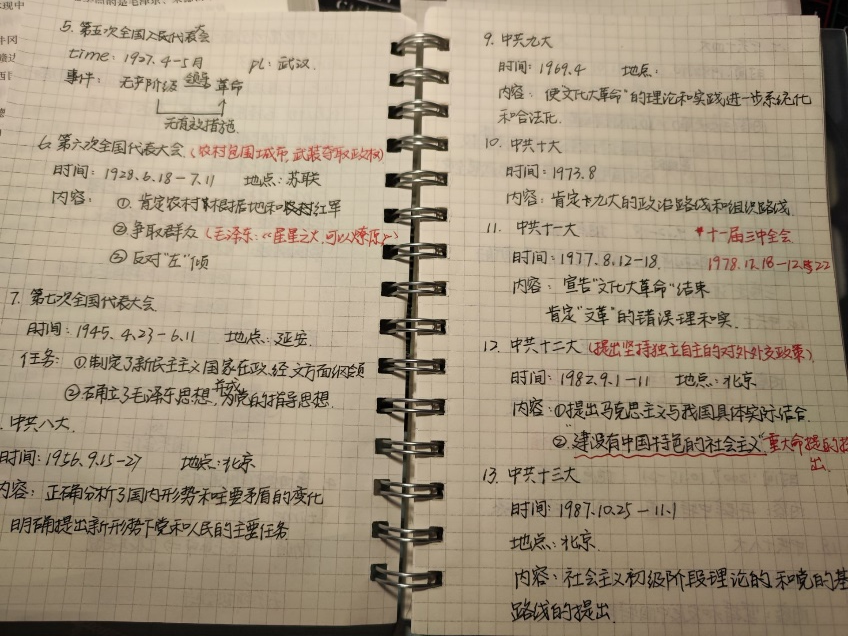 5. 第五次全国人民代表大会
time: 1927.4-5月 pl: 武汉.
事件: 无产阶级 革命
无有效措施.
6. 第六次全国代表大会 (农村包围城市, 武装夺取政权)
时间: 1928.6.18-7.11 地点: 苏联
内容: ①. 肯定农村根据地和农村红军
② 争取群众 (毛泽东:《星星之火,可以燎原》)
③ 反对"左"倾
7. 第七次全国代表大会
时间: 1945.4.23-6.11 地点: 延安.
任务: ①制定了新民主主义国家在政、经、文方面纲领
②确立了毛泽东思想, 为党的指导思想.
. 中共八大
时间: 1956.9.15-27 地点: 北京
内容: 正确分析了国内形势和主要矛盾的变化
明确提出新形势下党和人民的主要任务
9. 中共九大
时间: 1969.4 地点:
内容: 使"文化大革命"的理论和实践进一步系统化
和合法化.
10. 中共十大
时间: 1973.8
内容: 肯定九大的政治路线和组织路线
11. 中共十一大 *十一届三中全会
时间: 1977.8.12-18. 1978.12.18-12.22
内容: 宣告"文化大革命"结束
肯定"文革"的错误理和实.
12. 中共十二大 (提出坚持独立自主的对外外交政策)
时间: 1982.9.1-11 地点: 北京
内容: ①提出马克思主义与我国具体实际结合.
②."建设有中国特色的社会主义"重大命题的提
出.
13. 中共十三大
时间: 1987.10.25-11.1
地点: 北京.
内容: 社会主义初级阶段理论的和党的基
路线的提出.